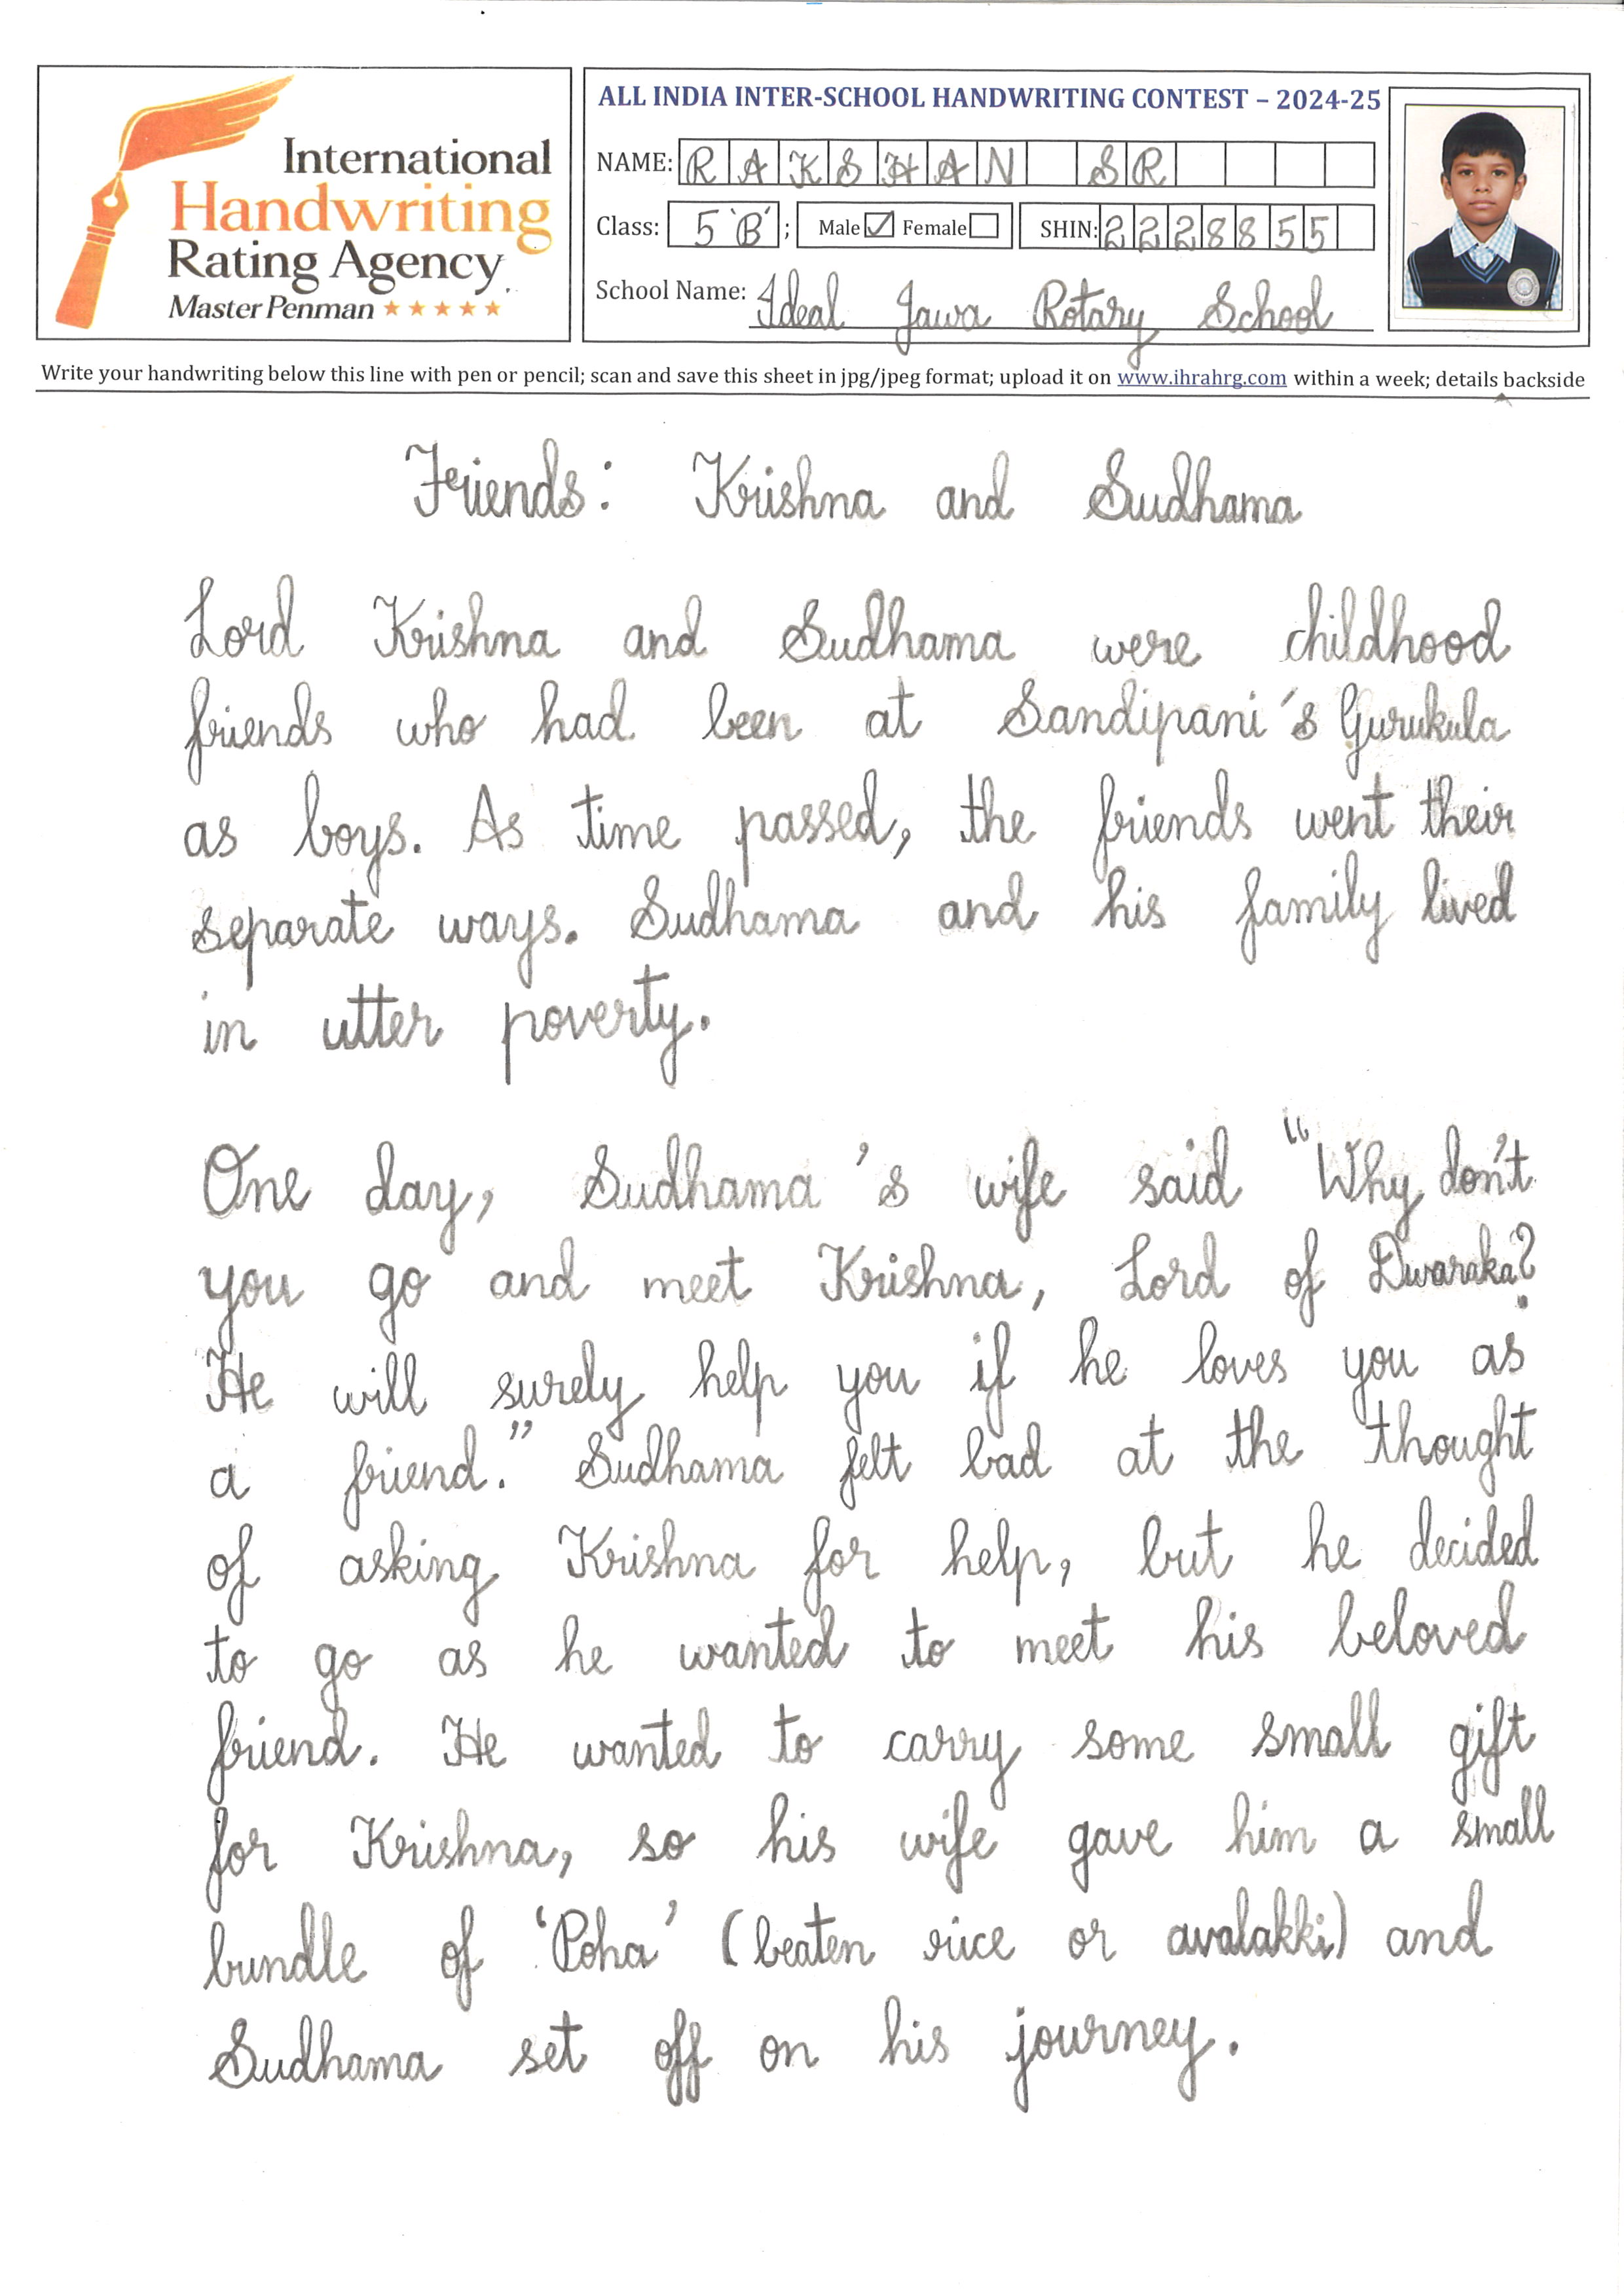 International
Handwriting
Rating Agency
Master Penman
ALL INDIA INTER-SCHOOL HANDWRITING CONTEST – 2024-25
NAME: RAKSHAN SR
Class: 5 'B'; Male ☑ Female ☐ SHIN: 2228855
School Name: Ideal Jawa Rotary School
Write your handwriting below this line with pen or pencil; scan and save this sheet in jpg/jpeg format; upload it on www.ihrahrg.com within a week; details backside
Friends: Krishna and Sudhama
Lord Krishna and Sudhama were childhood
friends who had been at Sandipani's Gurukula
as boys. As time passed, the friends went their
separate ways. Sudhama and his family lived
in utter poverty.
One day, Sudhama's wife said "Why don't
you go and meet Krishna, Lord of Dwaraka?
He will surely help you if he loves you as
a friend." Sudhama felt bad at the thought
of asking Krishna for help, but he decided
to go as he wanted to meet his beloved
friend. He wanted to carry some small gift
for Krishna, so his wife gave him a small
bundle of 'Poha' (beaten rice or avalakki) and
Sudhama set off on his journey.